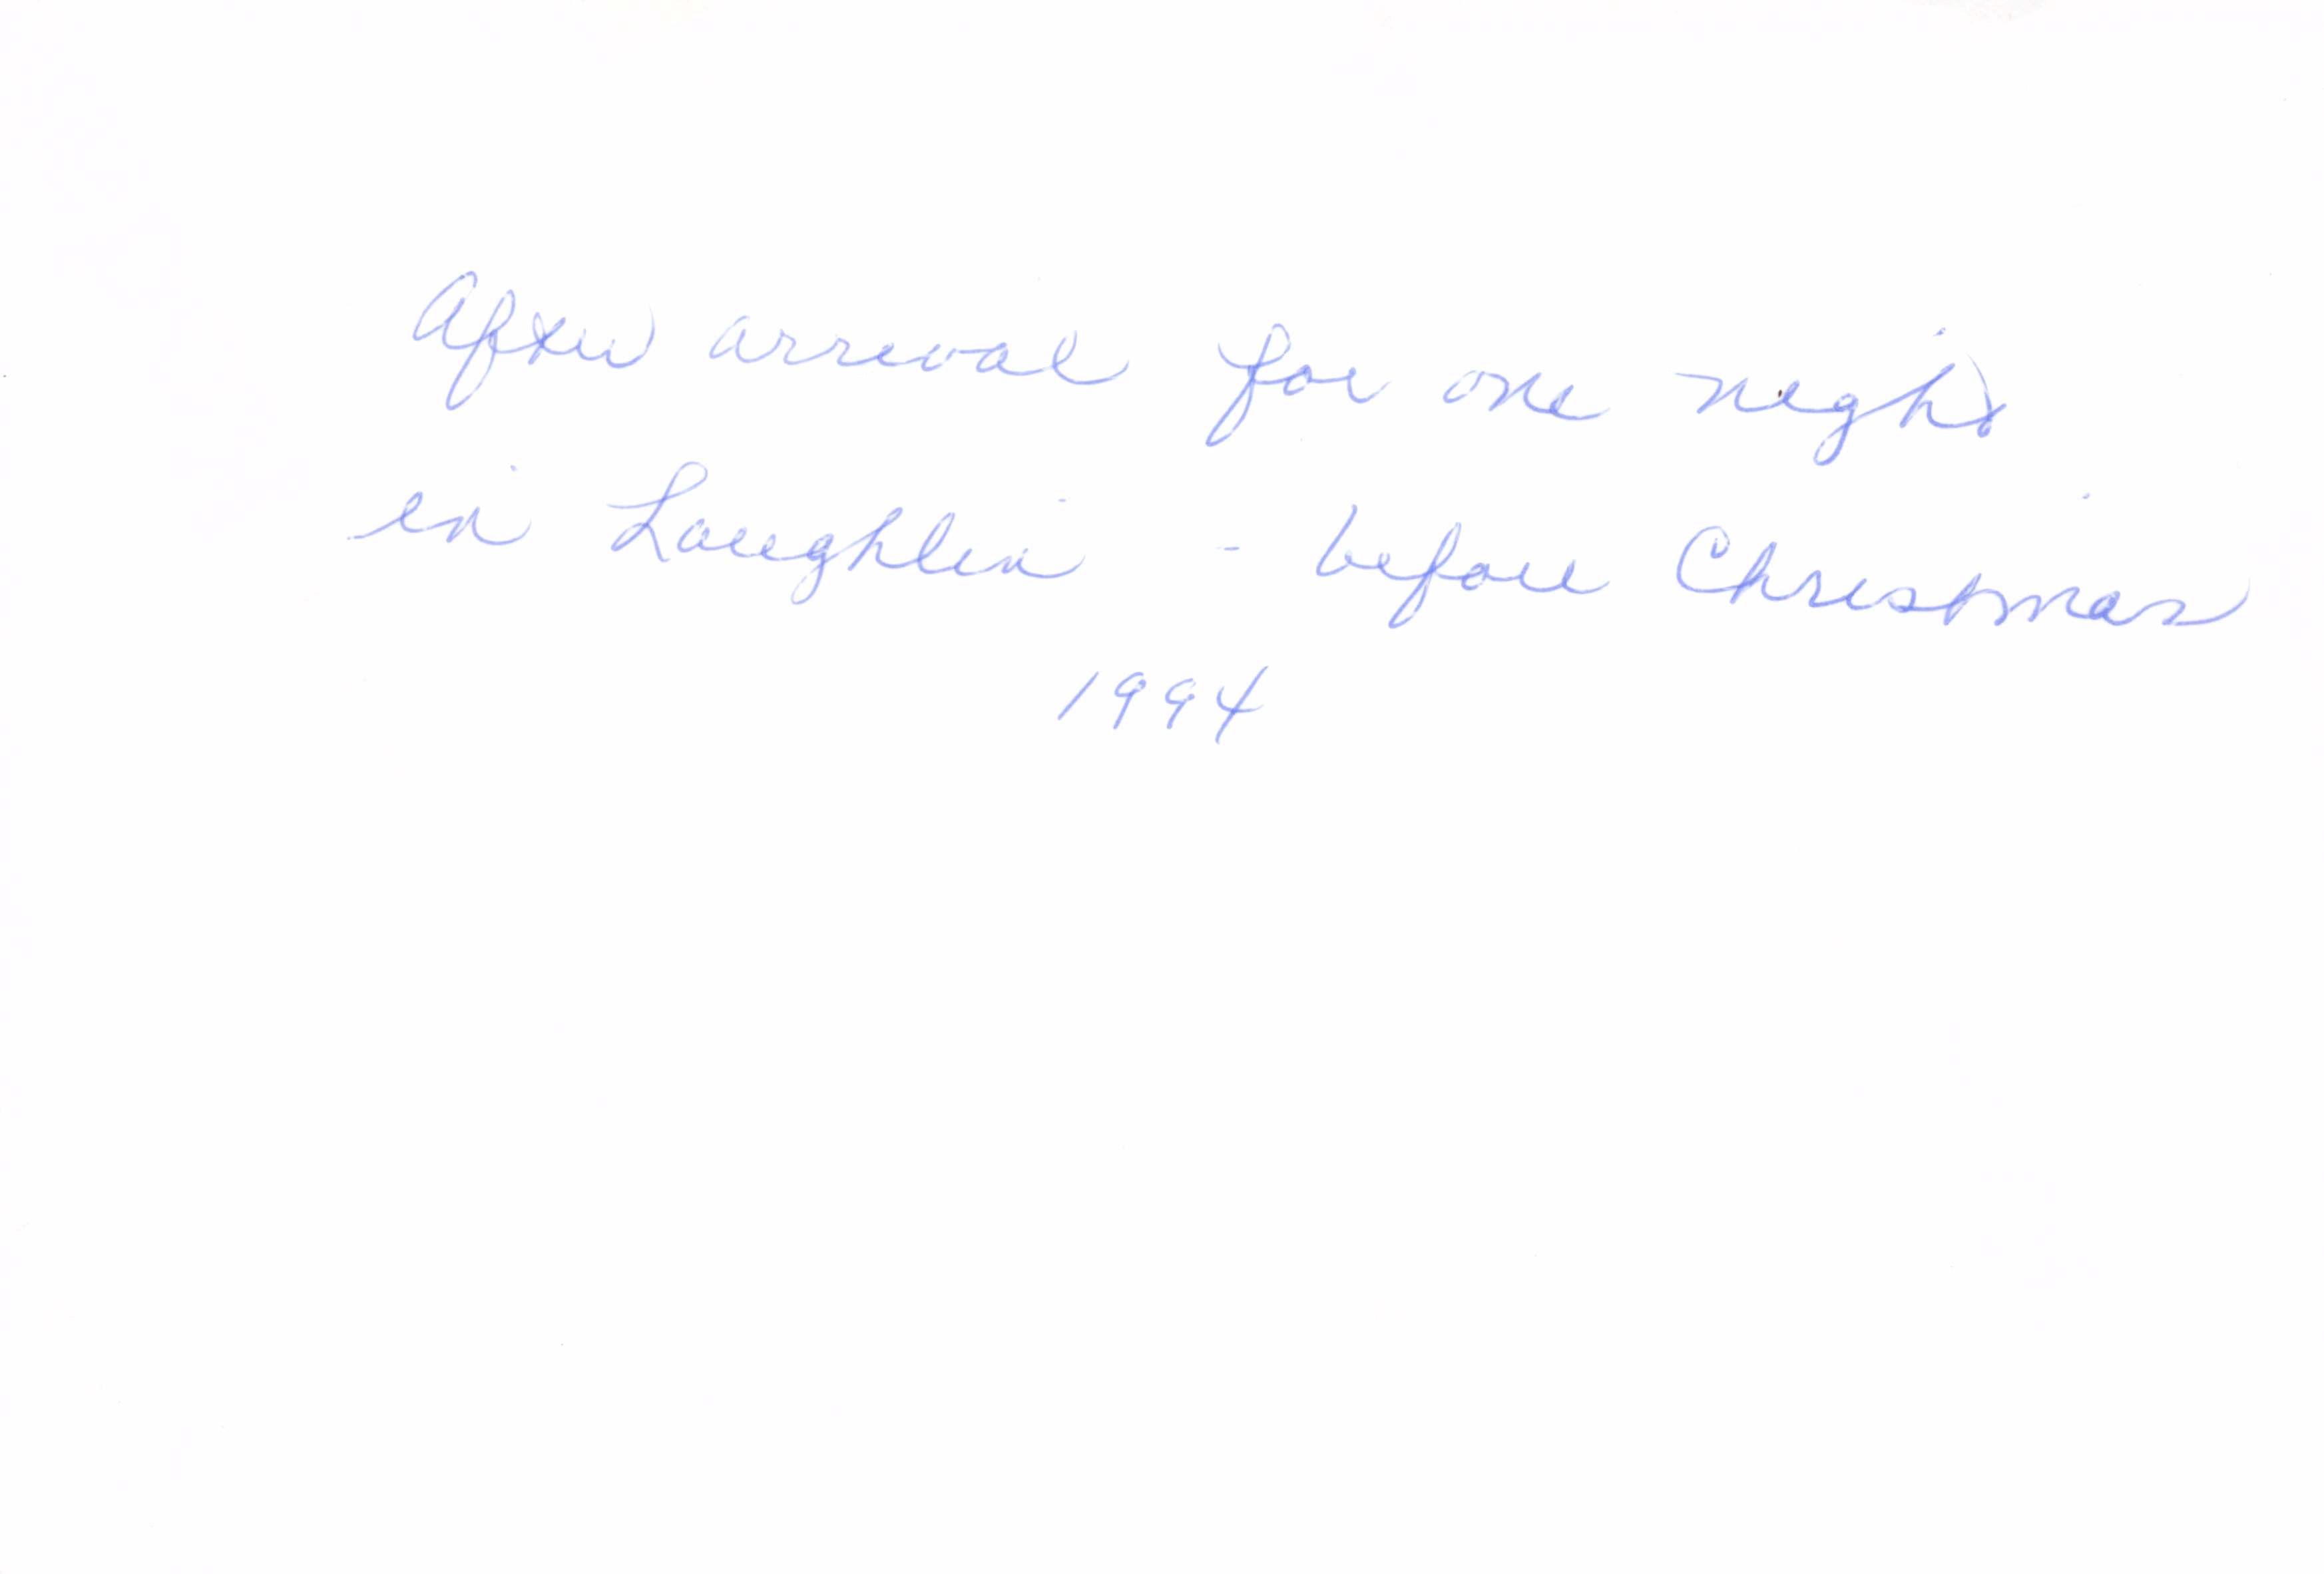 After arrival for one night
in Laughlin - before Christmas
1994